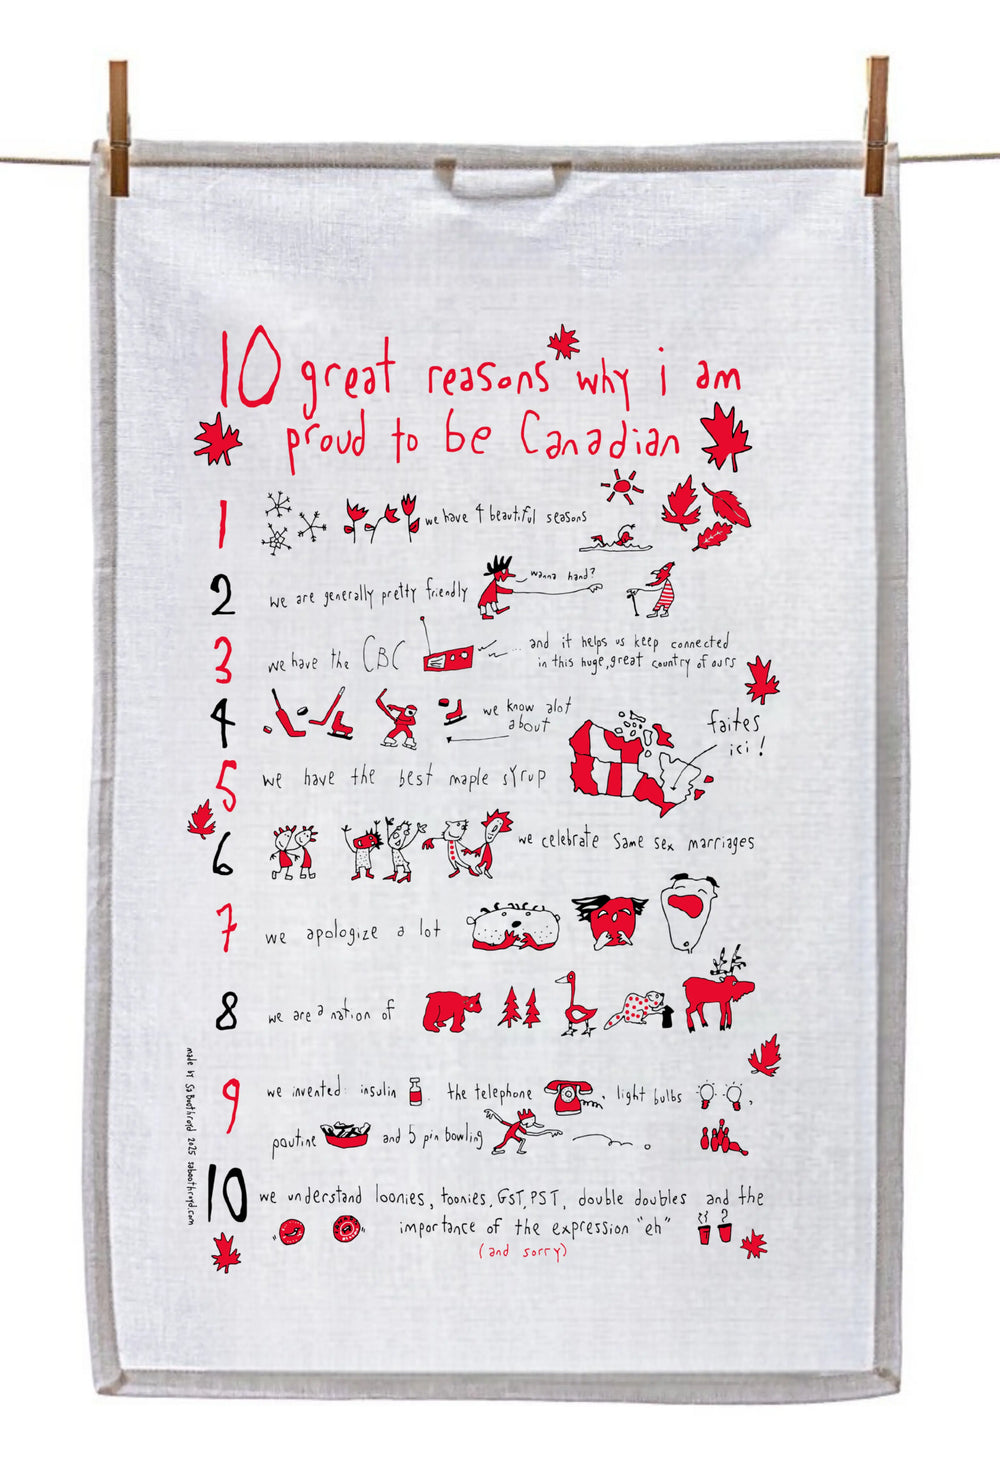 10 great reasons why i am
proud to be Canadian
1 we have 4 beautiful seasons
2 we are generally pretty friendly
wanna hand?
3 we have the CBC
... and it helps us keep connected
in this huge, great country of ours
4 we know alot
about
faites
ici!
5 we have the best maple syrup
6 we celebrate same sex marriages
7 we apologize a lot
8 we are a nation of
9 we invented insulin . the telephone , light bulbs ,
poutine and 5 pin bowling
10 we understand loonies, toonies, GST, PST, double doubles and the
importance of the expression "eh"
(and sorry)
made by Sa Boothroyd 2025 saboothroyd.com